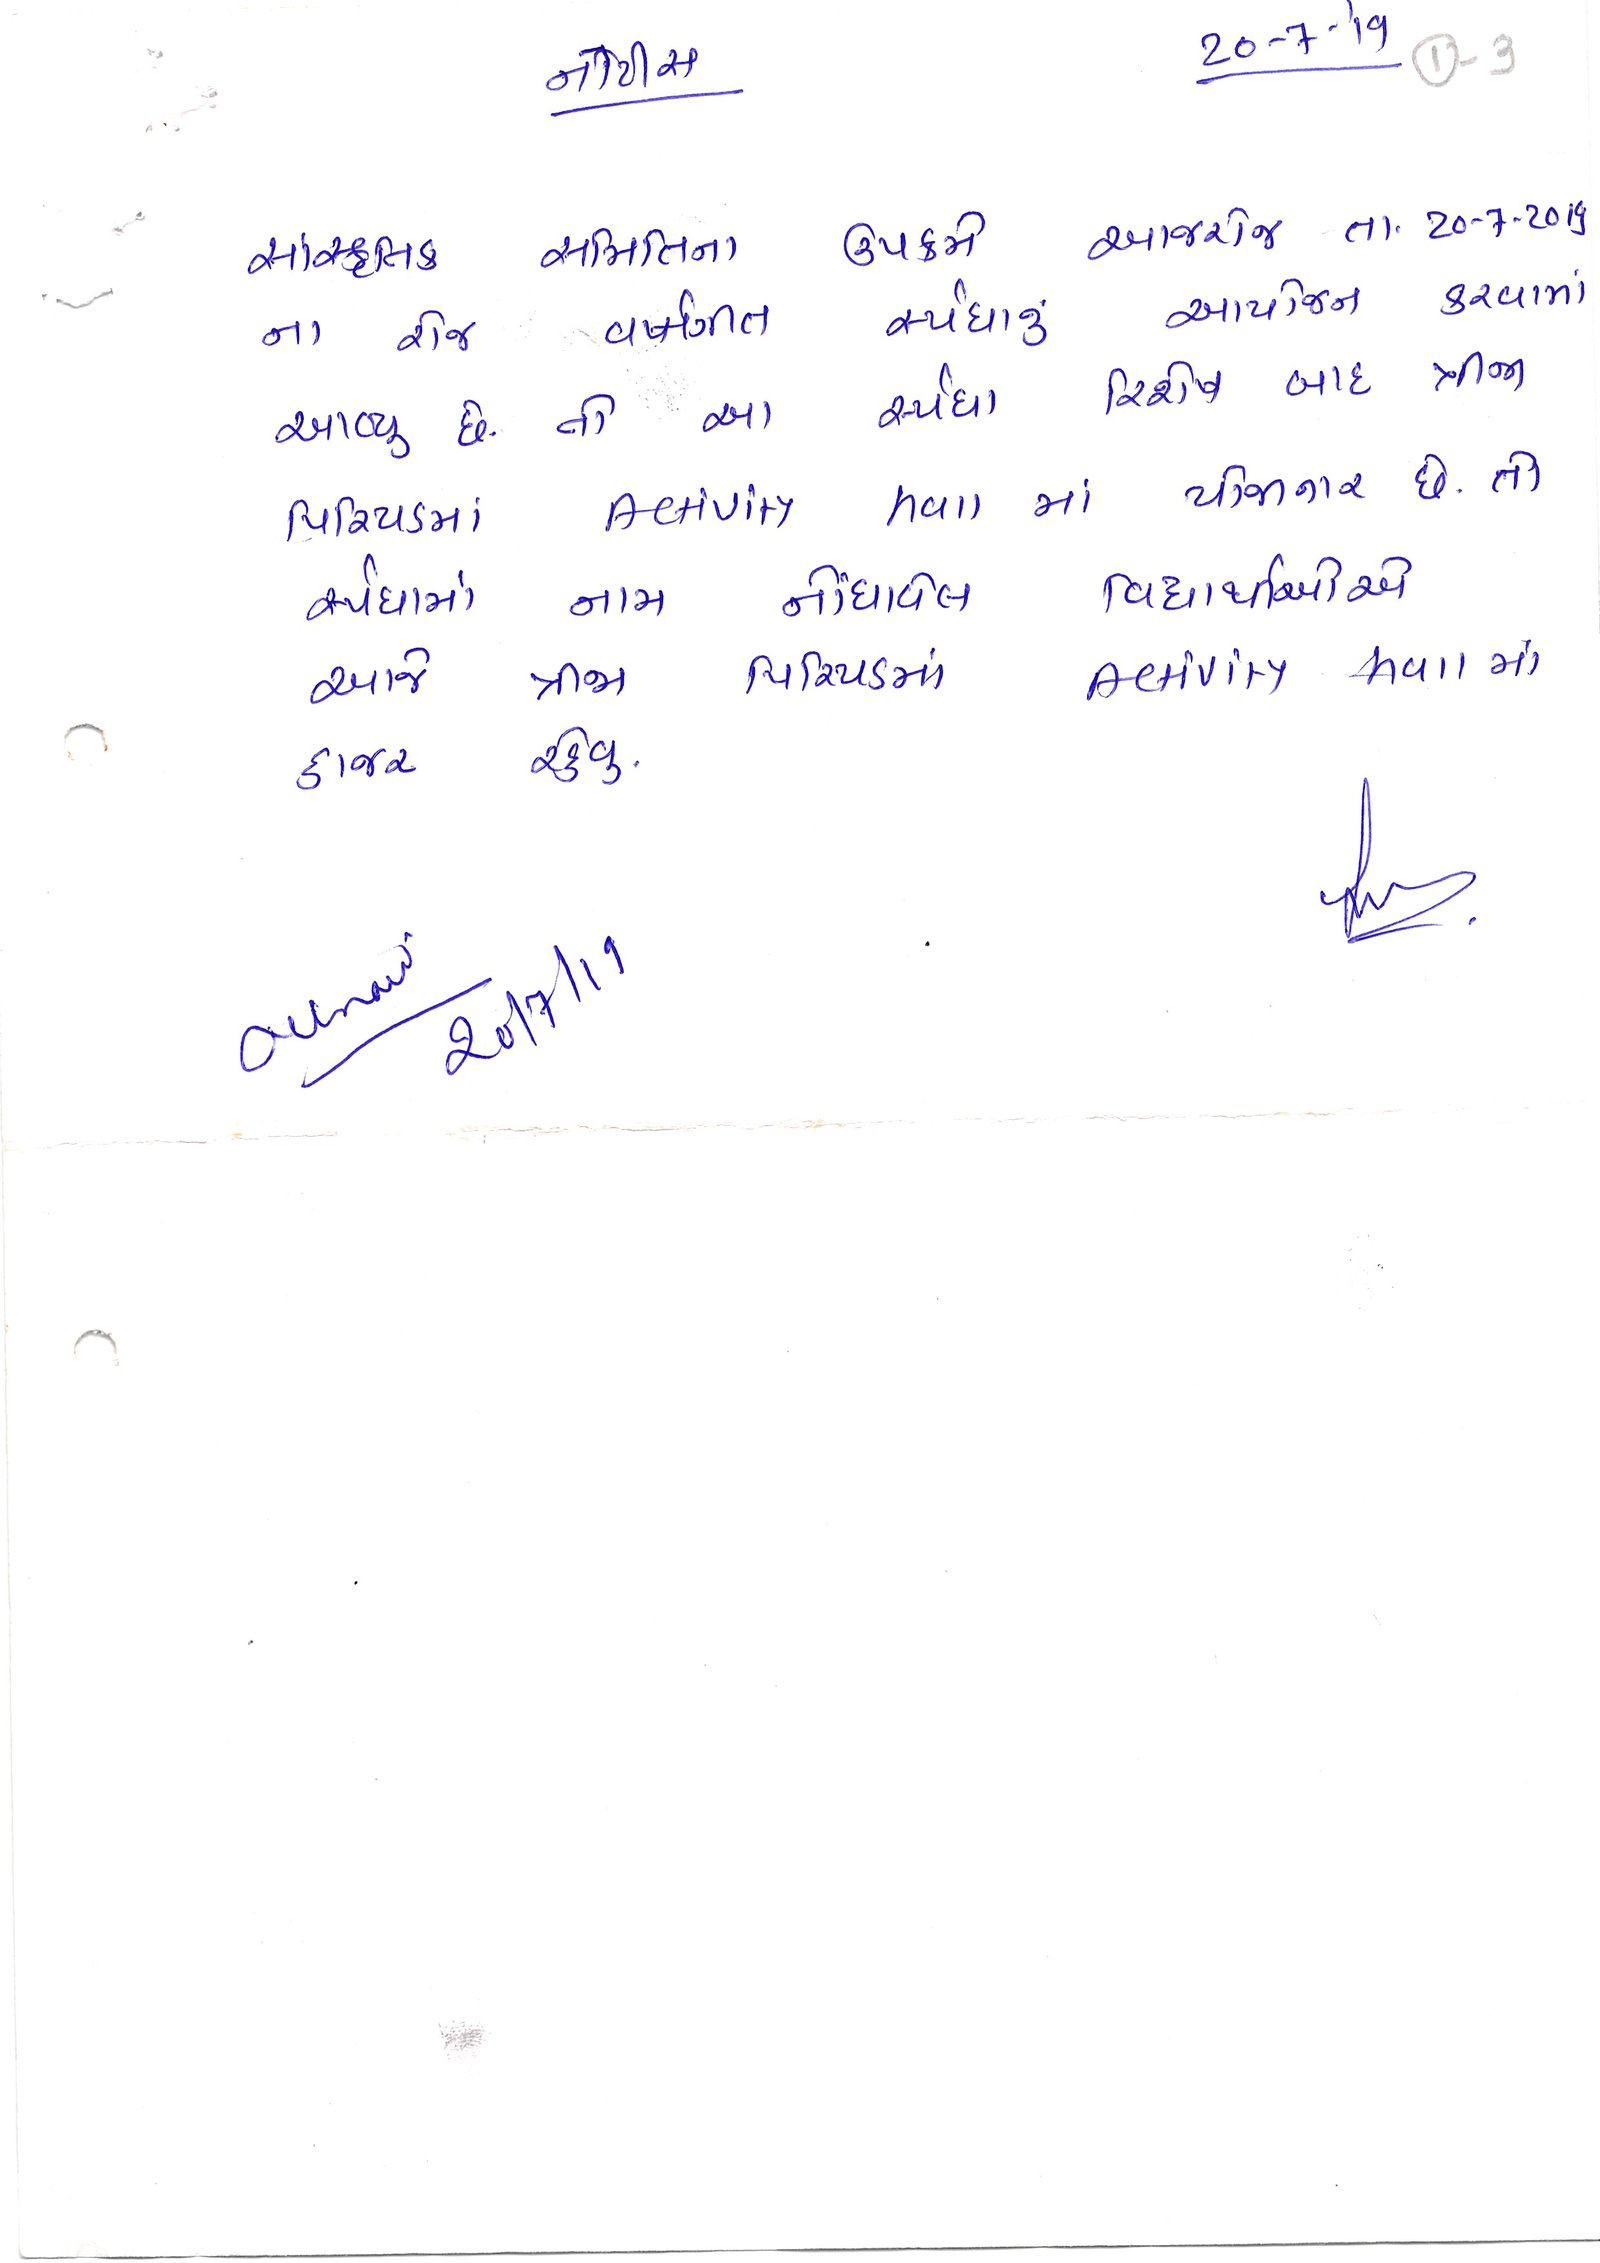 20-7-'19 ①-3
નોટીસ
સાંસ્કૃતિક સમિતિના ઉપક્રમે આજરોજ તા. 20-7-2019
ના રોજ વર્ષાગીત સ્પર્ધાનું આયોજન કરવામાં
આવ્યુ છે. તો આ સ્પર્ધા રિશેષ બાદ ત્રીજા
પિરિયડમાં Activity hall માં યોજાનાર છે. તો
સ્પર્ધામાં નામ નોંધાવેલ વિદ્યાર્થીઓએ
આજે ત્રીજા પિરિયડમાં Activity hall માં
હાજર રહેવુ.
20/7/19